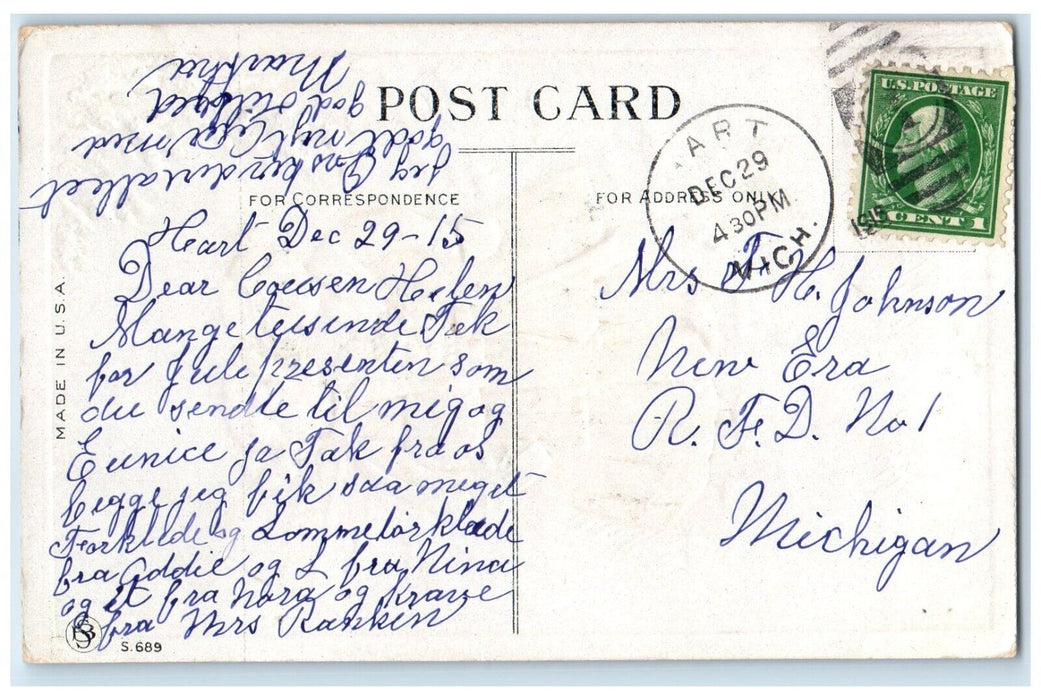 POST CARD
FOR CORRESPONDENCE
FOR ADDRESS ONLY
Heart Dec 29-15
Dear Cousen Helen
Mange tusinde Tak
for Julepresenten som
du sendte til mig og
Eunice ja Tak fra os
begge jeg fik saa meget
Forklæde og Lommetørklæde
fra Addie og L fra Nina
og et fra Nora og Krave
fra Mrs Ranken
jeg Ønsker du alleet
godt nyt
god
Martha
MADE IN U.S.A.
S.689
ART
DEC 29
4 30 PM
MICH.
1915
U.S. POSTAGE
1 CENT 1
Mrs F. H. Johnson
New Era
R. F. D. No 1
Michigan